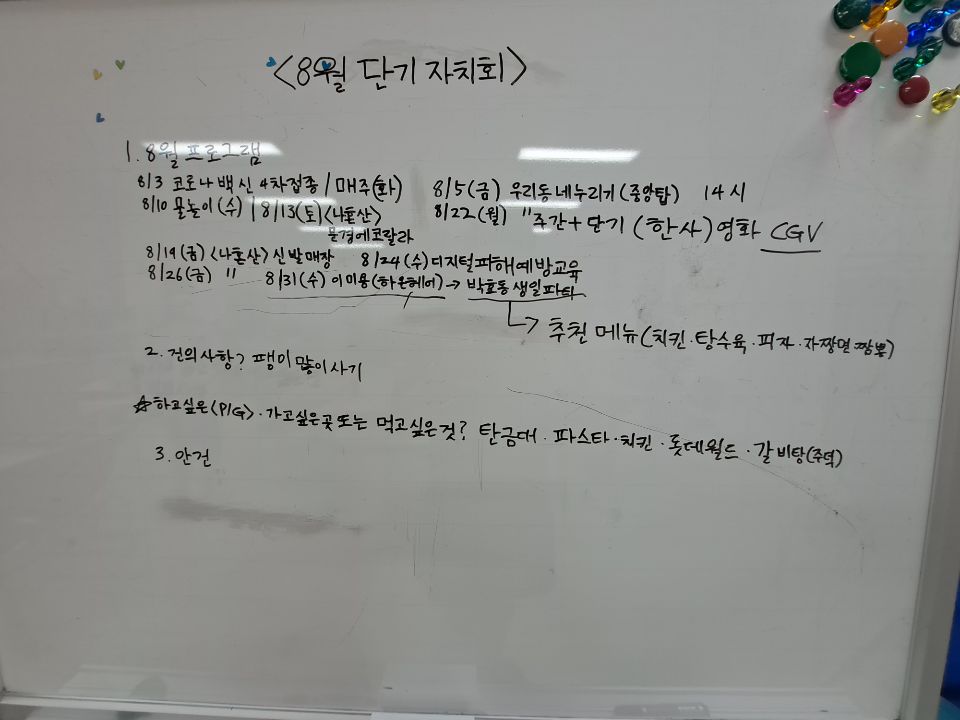 <8월 단기 자치회>
1. 8월 프로그램
8/3 코로나 백신 4차접종 / 매주(화) 8/5(금) 우리동네누리기(중앙탑) 14시
8/10 물놀이(수) / 8/13(토)<나혼산> 8/22(월) "주간+단기 (한사)영화 CGV
문경에코랄라
8/19(금)<나혼산>신발매장 8/24(수)디지털피해예방교육
8/26(금) " 8/31(수) 이미용(하은헤어)→박효동생일파티
→ 추천 메뉴(치킨·탕수육·피자·자짱면·짬뽕)
2. 건의사항? 팽이 많이사기
☆하고싶은<P/G>·가고싶은곳또는 먹고싶은것? 탄금대·파스타·치킨·롯데월드·갈비탕(주덕)
3. 안건